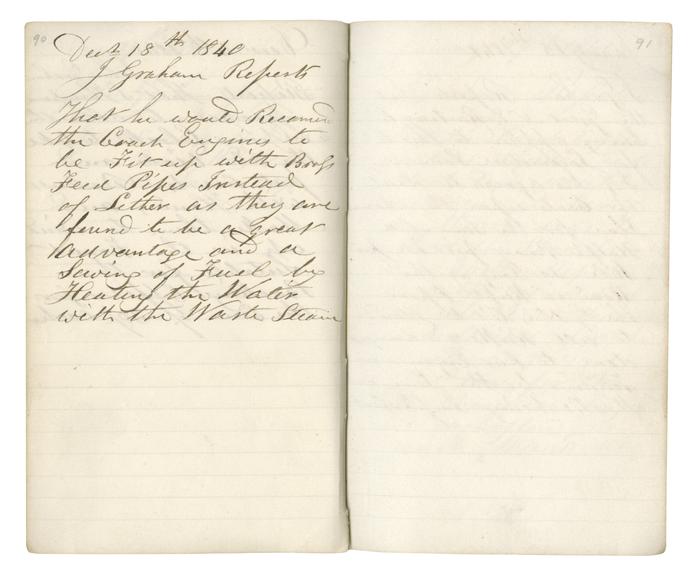 90
Dect 18th 1840
J Graham Reports
That he would Recomend
the Coach Engines to
be Fit up with
Feed Pipes Instead
of Lether as they are
found to be a great
advantage and a
Saving of Fuel by
Heating the Water
with the Waste Steam
91